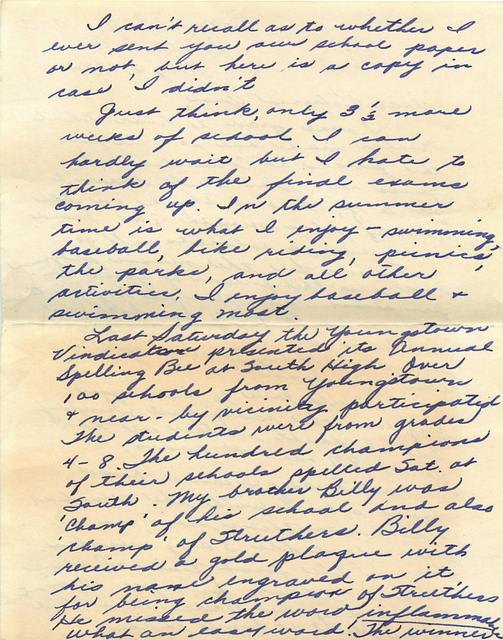 I can't recall as to whether I
ever sent you our school paper
or not, but here is a copy in
case I didn't
Just think, only 3 1/2 more
weeks of school. I can
hardly wait but I hate to
think of the final exams
coming up. In the summer
time is what I enjoy - swimming,
baseball, bike riding, picnics,
the parks, and all other
activities. I enjoy baseball &
swimming most.
Last Saturday the Youngstown
Vindicator presented its Annual
Spelling Bee at South High. Over
100 schools from Youngstown
& near-by vicinity participated
The students were from grades
4-8. The hundred champions
of their schools spelled Sat. at
South. My brother Billy was
'champ' of his school and also
'champ' of Struthers. Billy
received a gold plaque with
his name engraved on it
for being champion of Struthers
He missed the word
what an easy word. The winner